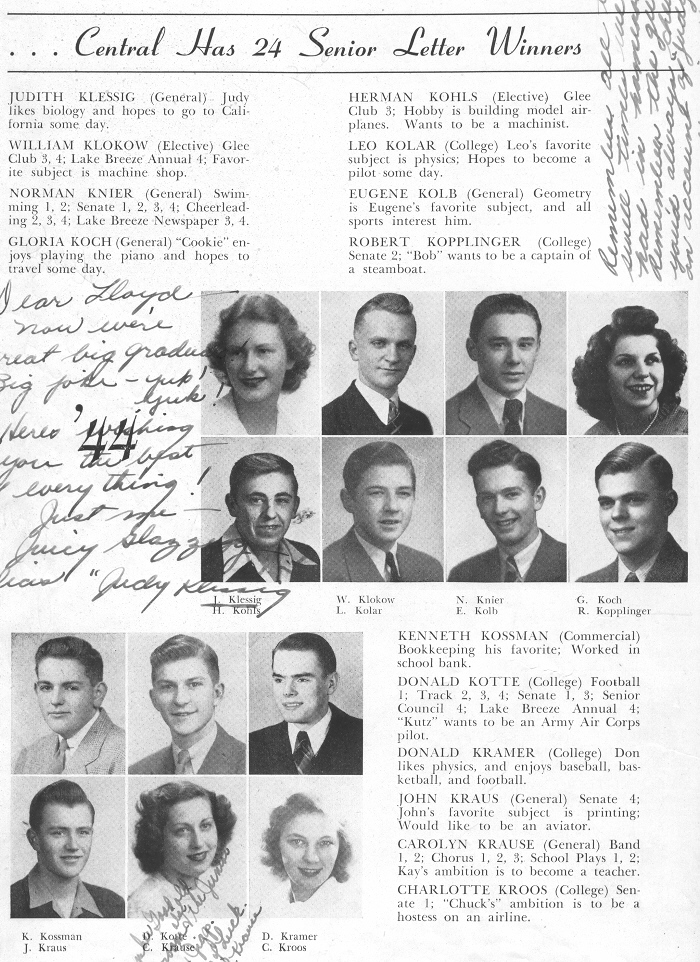 . . . Central Has 24 Senior Letter Winners
JUDITH KLESSIG (General) Judy
likes biology and hopes to go to Cali-
fornia some day.
WILLIAM KLOKOW (Elective) Glee
Club 3, 4; Lake Breeze Annual 4; Favor-
ite subject is machine shop.
NORMAN KNIER (General) Swim-
ming 1, 2; Senate 1, 2, 3, 4; Cheerlead-
ing 2, 3, 4; Lake Breeze Newspaper 3, 4.
GLORIA KOCH (General) "Cookie" en-
joys playing the piano and hopes to
travel some day.
HERMAN KOHLS (Elective) Glee
Club 3; Hobby is building model air-
planes. Wants to be a machinist.
LEO KOLAR (College) Leo's favorite
subject is physics; Hopes to become a
pilot some day.
EUGENE KOLB (General) Geometry
is Eugene's favorite subject, and all
sports interest him.
ROBERT KOPPLINGER (College)
Senate 2; "Bob" wants to be a captain of
a steamboat.
Remember all
had in
you always
Dear Lloyd —
Now we're
great big
Big joke – yuk!
yuk!
Heres wishing
'44
you the best
everything!
Just me —
Juicy
"Judy Klessig
J. Klessig W. Klokow N. Knier G. Koch
H. Kohls L. Kolar E. Kolb R. Kopplinger
KENNETH KOSSMAN (Commercial)
Bookkeeping his favorite; Worked in
school bank.
DONALD KOTTE (College) Football
1; Track 2, 3, 4; Senate 1, 3; Senior
Council 4; Lake Breeze Annual 4;
"Kutz" wants to be an Army Air Corps
pilot.
DONALD KRAMER (College) Don
likes physics, and enjoys baseball, bas-
ketball, and football.
JOHN KRAUS (General) Senate 4;
John's favorite subject is printing;
Would like to be an aviator.
CAROLYN KRAUSE (General) Band
1, 2; Chorus 1, 2, 3; School Plays 1, 2;
Kay's ambition is to become a teacher.
CHARLOTTE KROOS (College) Sen-
ate 1; "Chuck's" ambition is to be a
hostess on an airline.
K. Kossman D. Kotte D. Kramer
J. Kraus C. Krause C. Kroos